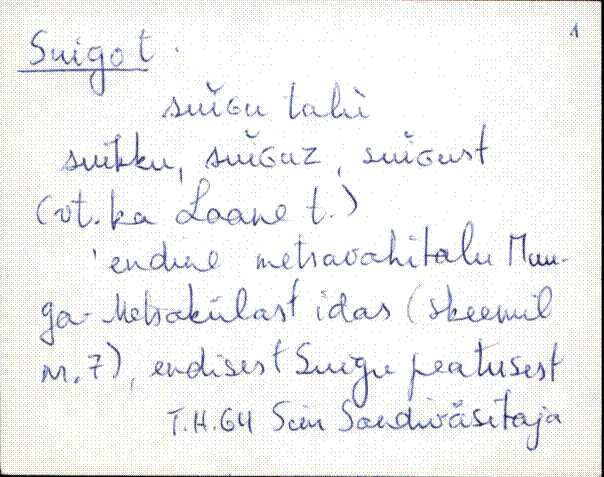 1
Suigo t.
suĭɢu talù
suikku, suĭɢuz, suĭɢust
(vt. ka Laane t.)
'endine metsavahitalu Muu-
ga-Metsakülast idas (skeemil
nr. 7), endisest Suigu peatusest
T.H.64 Sim